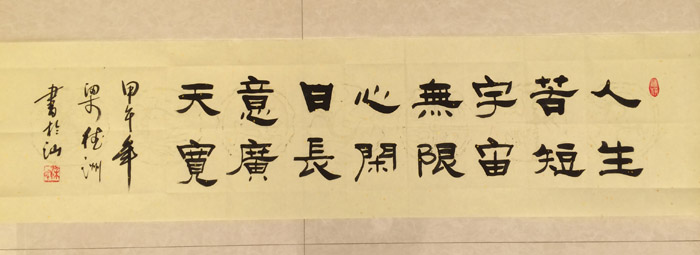 人生
苦短
宇宙
無限
心閑
日長
意廣
天寬
甲午年
梁桂洲
書於汕